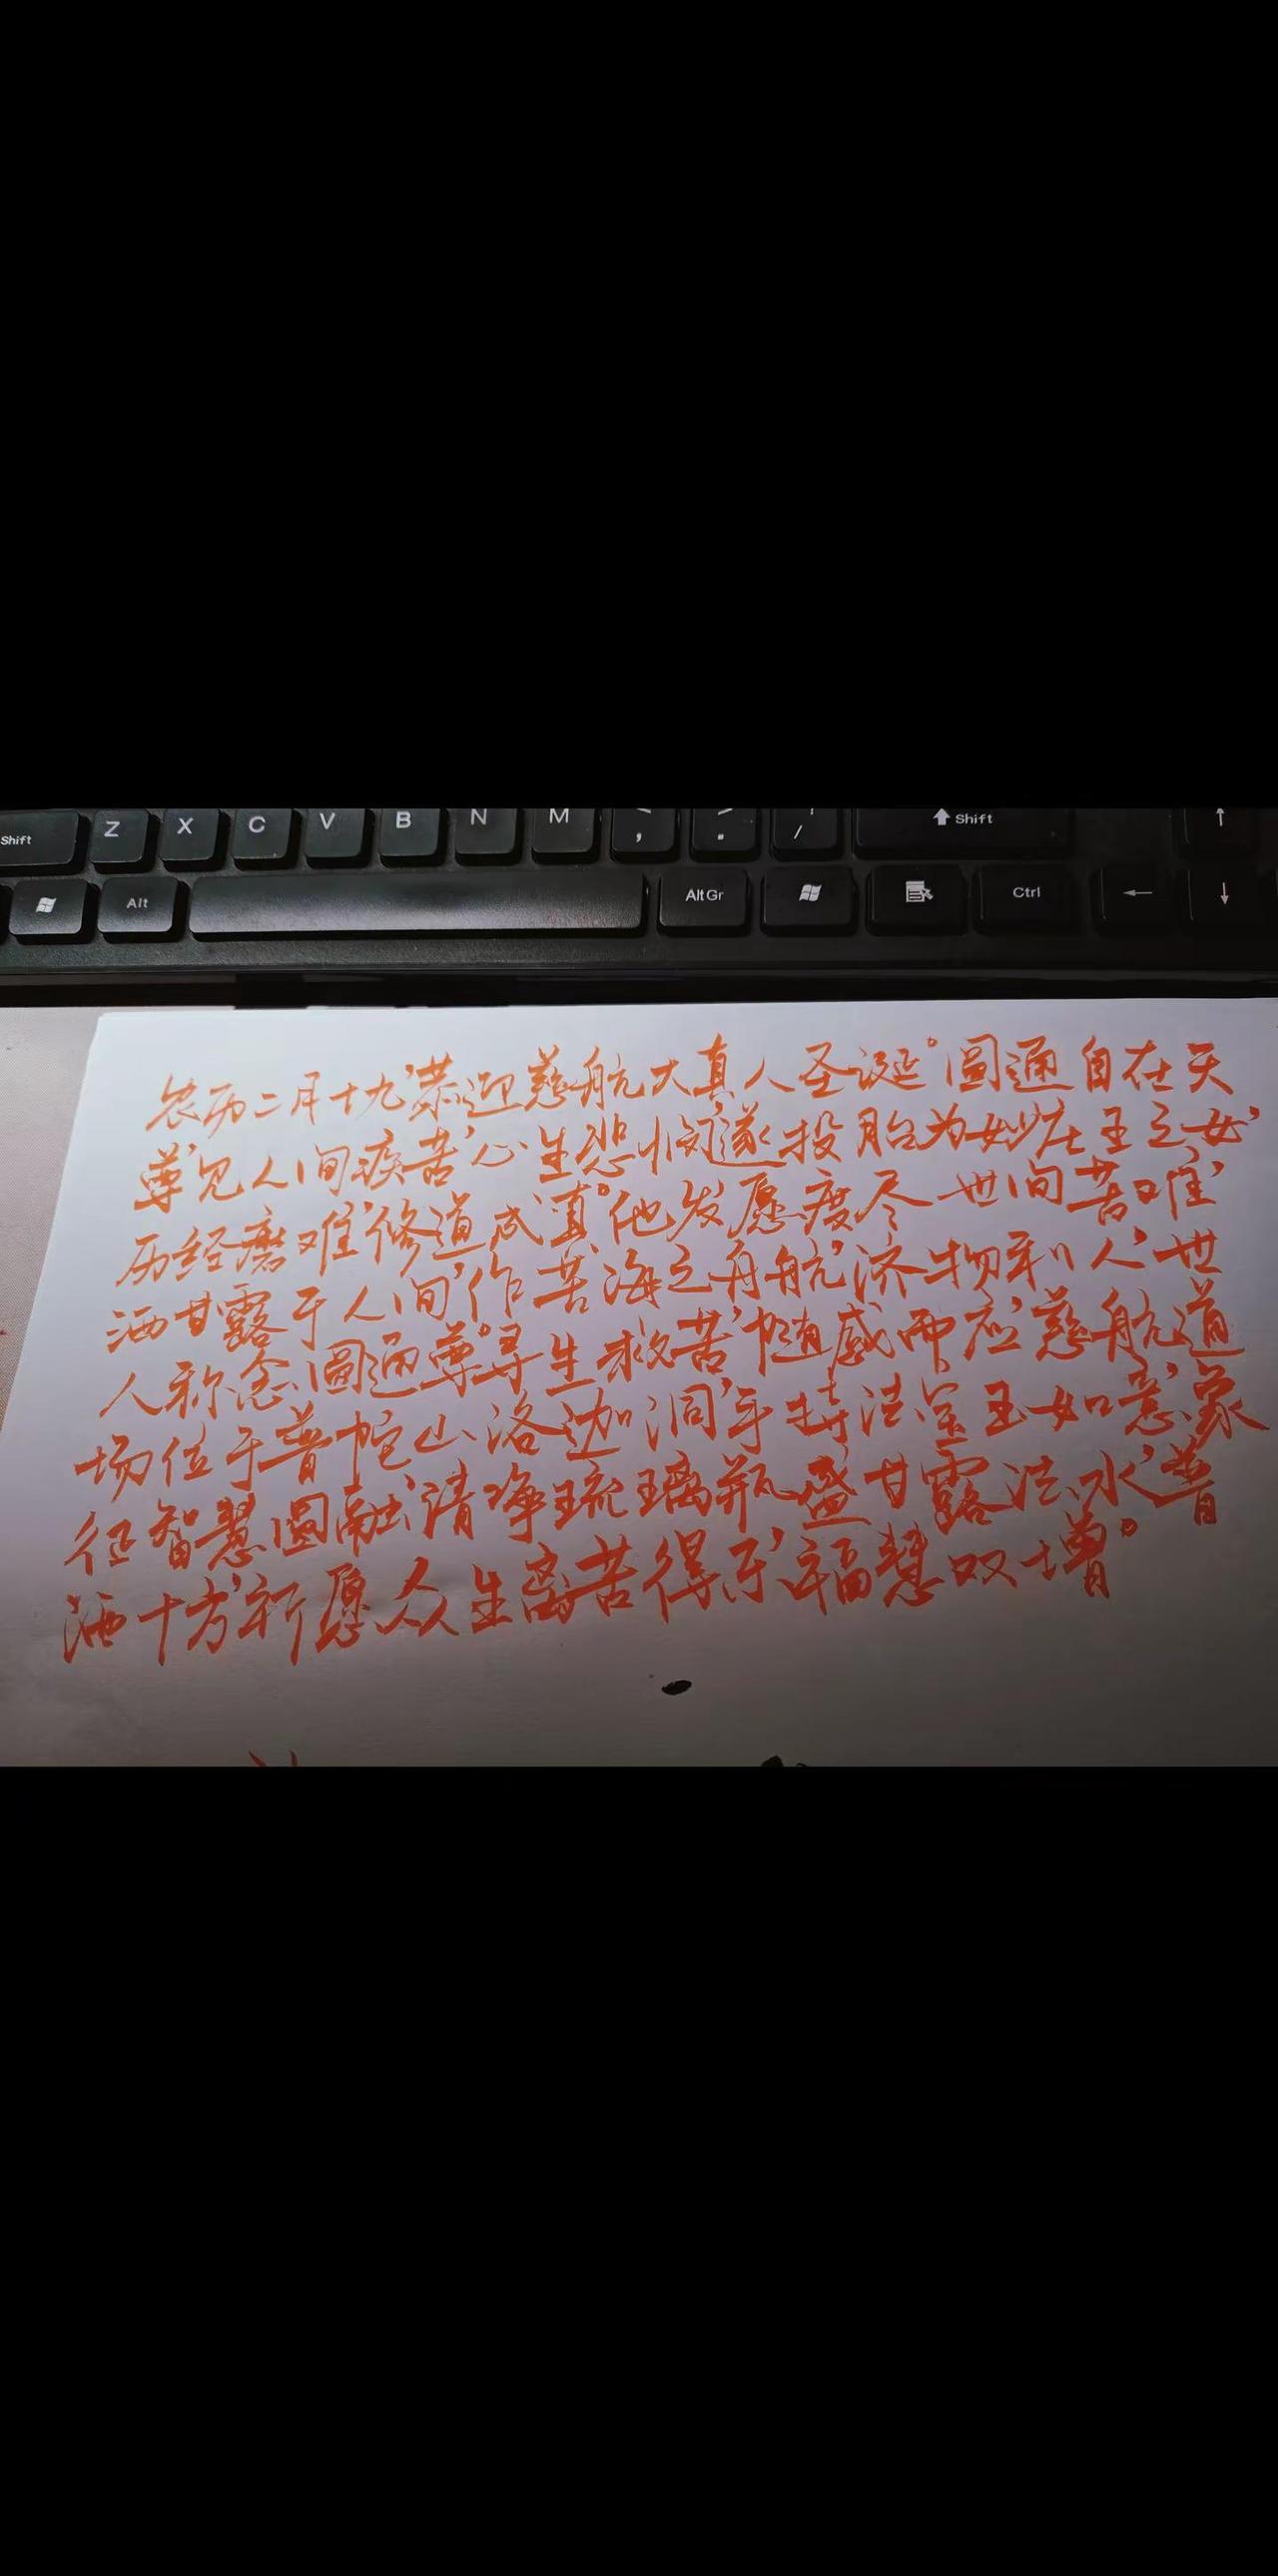 Shift Z X C V B N M < , > . ? / Shift ↑
Alt Alt Gr Ctrl ← ↓
农历二月十九，恭迎慈航大真人圣诞。圆通自在天
尊，见人间疾苦，心生悲悯，遂投胎为妙庄王之女，
历经磨难，修道成真。他发愿度尽世间苦难，
洒甘露于人间，作苦海之舟航，济物利人，世
人称念圆通尊。寻生救苦，随感而应，慈航道
场位于普陀山洛迦洞，手持法宝玉如意，象
征智慧圆融，清净琉璃瓶，盛甘露法水，普
洒十方，祈愿众生离苦得乐，福慧双增。